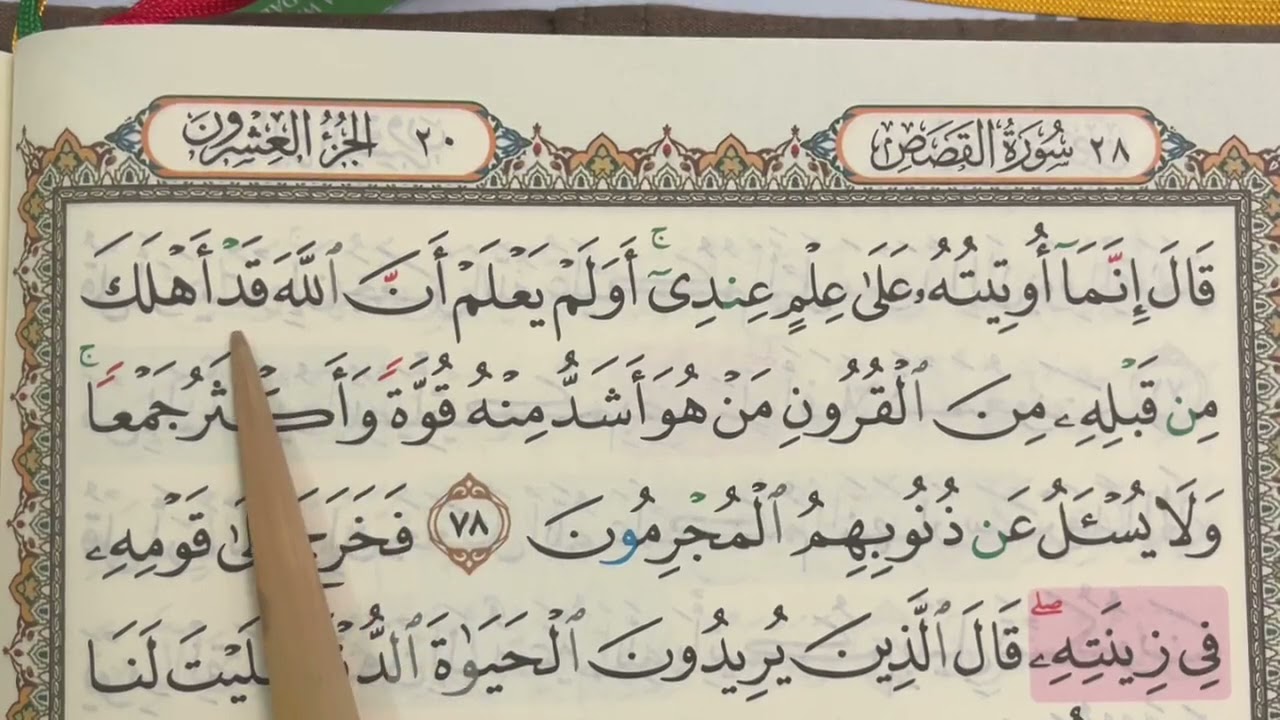 ٢٨ سُورَةُ القَصَصِ
٢٠ الجُزْءُ العِشْرُونَ
قَالَ إِنَّمَآ أُوتِيتُهُۥ عَلَىٰ عِلْمٍ عِندِىٓ ۚ أَوَلَمْ يَعْلَمْ أَنَّ ٱللَّهَ قَدْ أَهْلَكَ
مِن قَبْلِهِۦ مِنَ ٱلْقُرُونِ مَنْ هُوَ أَشَدُّ مِنْهُ قُوَّةً وَأَكْثَرُ جَمْعًا ۚ
وَلَا يُسْـَٔلُ عَن ذُنُوبِهِمُ ٱلْمُجْرِمُونَ ٧٨ فَخَرَجَ عَلَىٰ قَوْمِهِۦ
فِى زِينَتِهِۦ ۖ قَالَ ٱلَّذِينَ يُرِيدُونَ ٱلْحَيَوٰةَ ٱلدُّنْيَا يَـٰلَيْتَ لَنَا